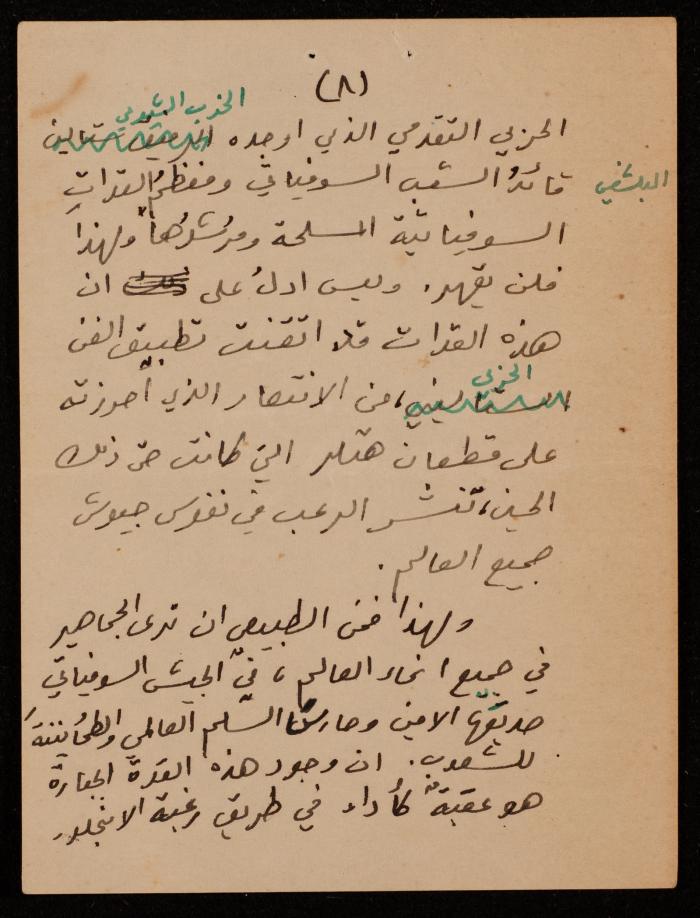 (٨)
الحزب الشيوعي
الحزبي التقدمي الذي اوجده الرفيق ستالين
البلشفي
قائدُ الشعب السوفياتي ومنظمُ القدراتِ
السوفياتية المسلحة ومرشدُها ولهذا
فلن تقهر. وليس ادلُ على ان
هذه القدرات قد اتقنت تطبيق الفن
الحزبي
الستاليني، من الانتصار الذي أحرزته
على قطعان هتلر التي كانت حتى ذلك
الحين، تنشر الرعب في نفوس جيوش
جميع العالم.
ولهذا فمن الطبيعي ان ترى الجماهير
في جميع انحاء العالم، في الجيش السوفياتي
صديقها الامين وحارس السلم العالمي والطمأنينة
للشعوب. ان وجود هذه القدرة الجبارة
هو عقبةٌ كأداء في طريق رغبة الانجلو